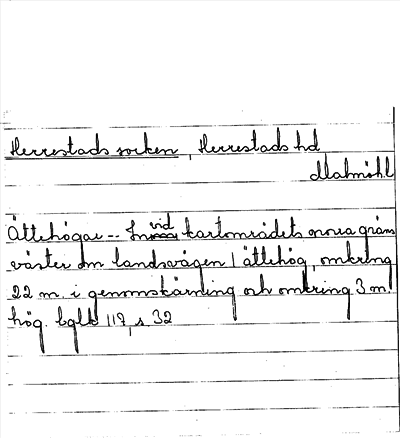 Herrestads socken, Herrestads hd
Malmöhl
Ättehögar -- vid kartområdets norra gräns
väster om landsvägen 1 ättehög, omkring
22 m. i genomskärning och omkring 3 m.
hög. bglb 117, s. 32